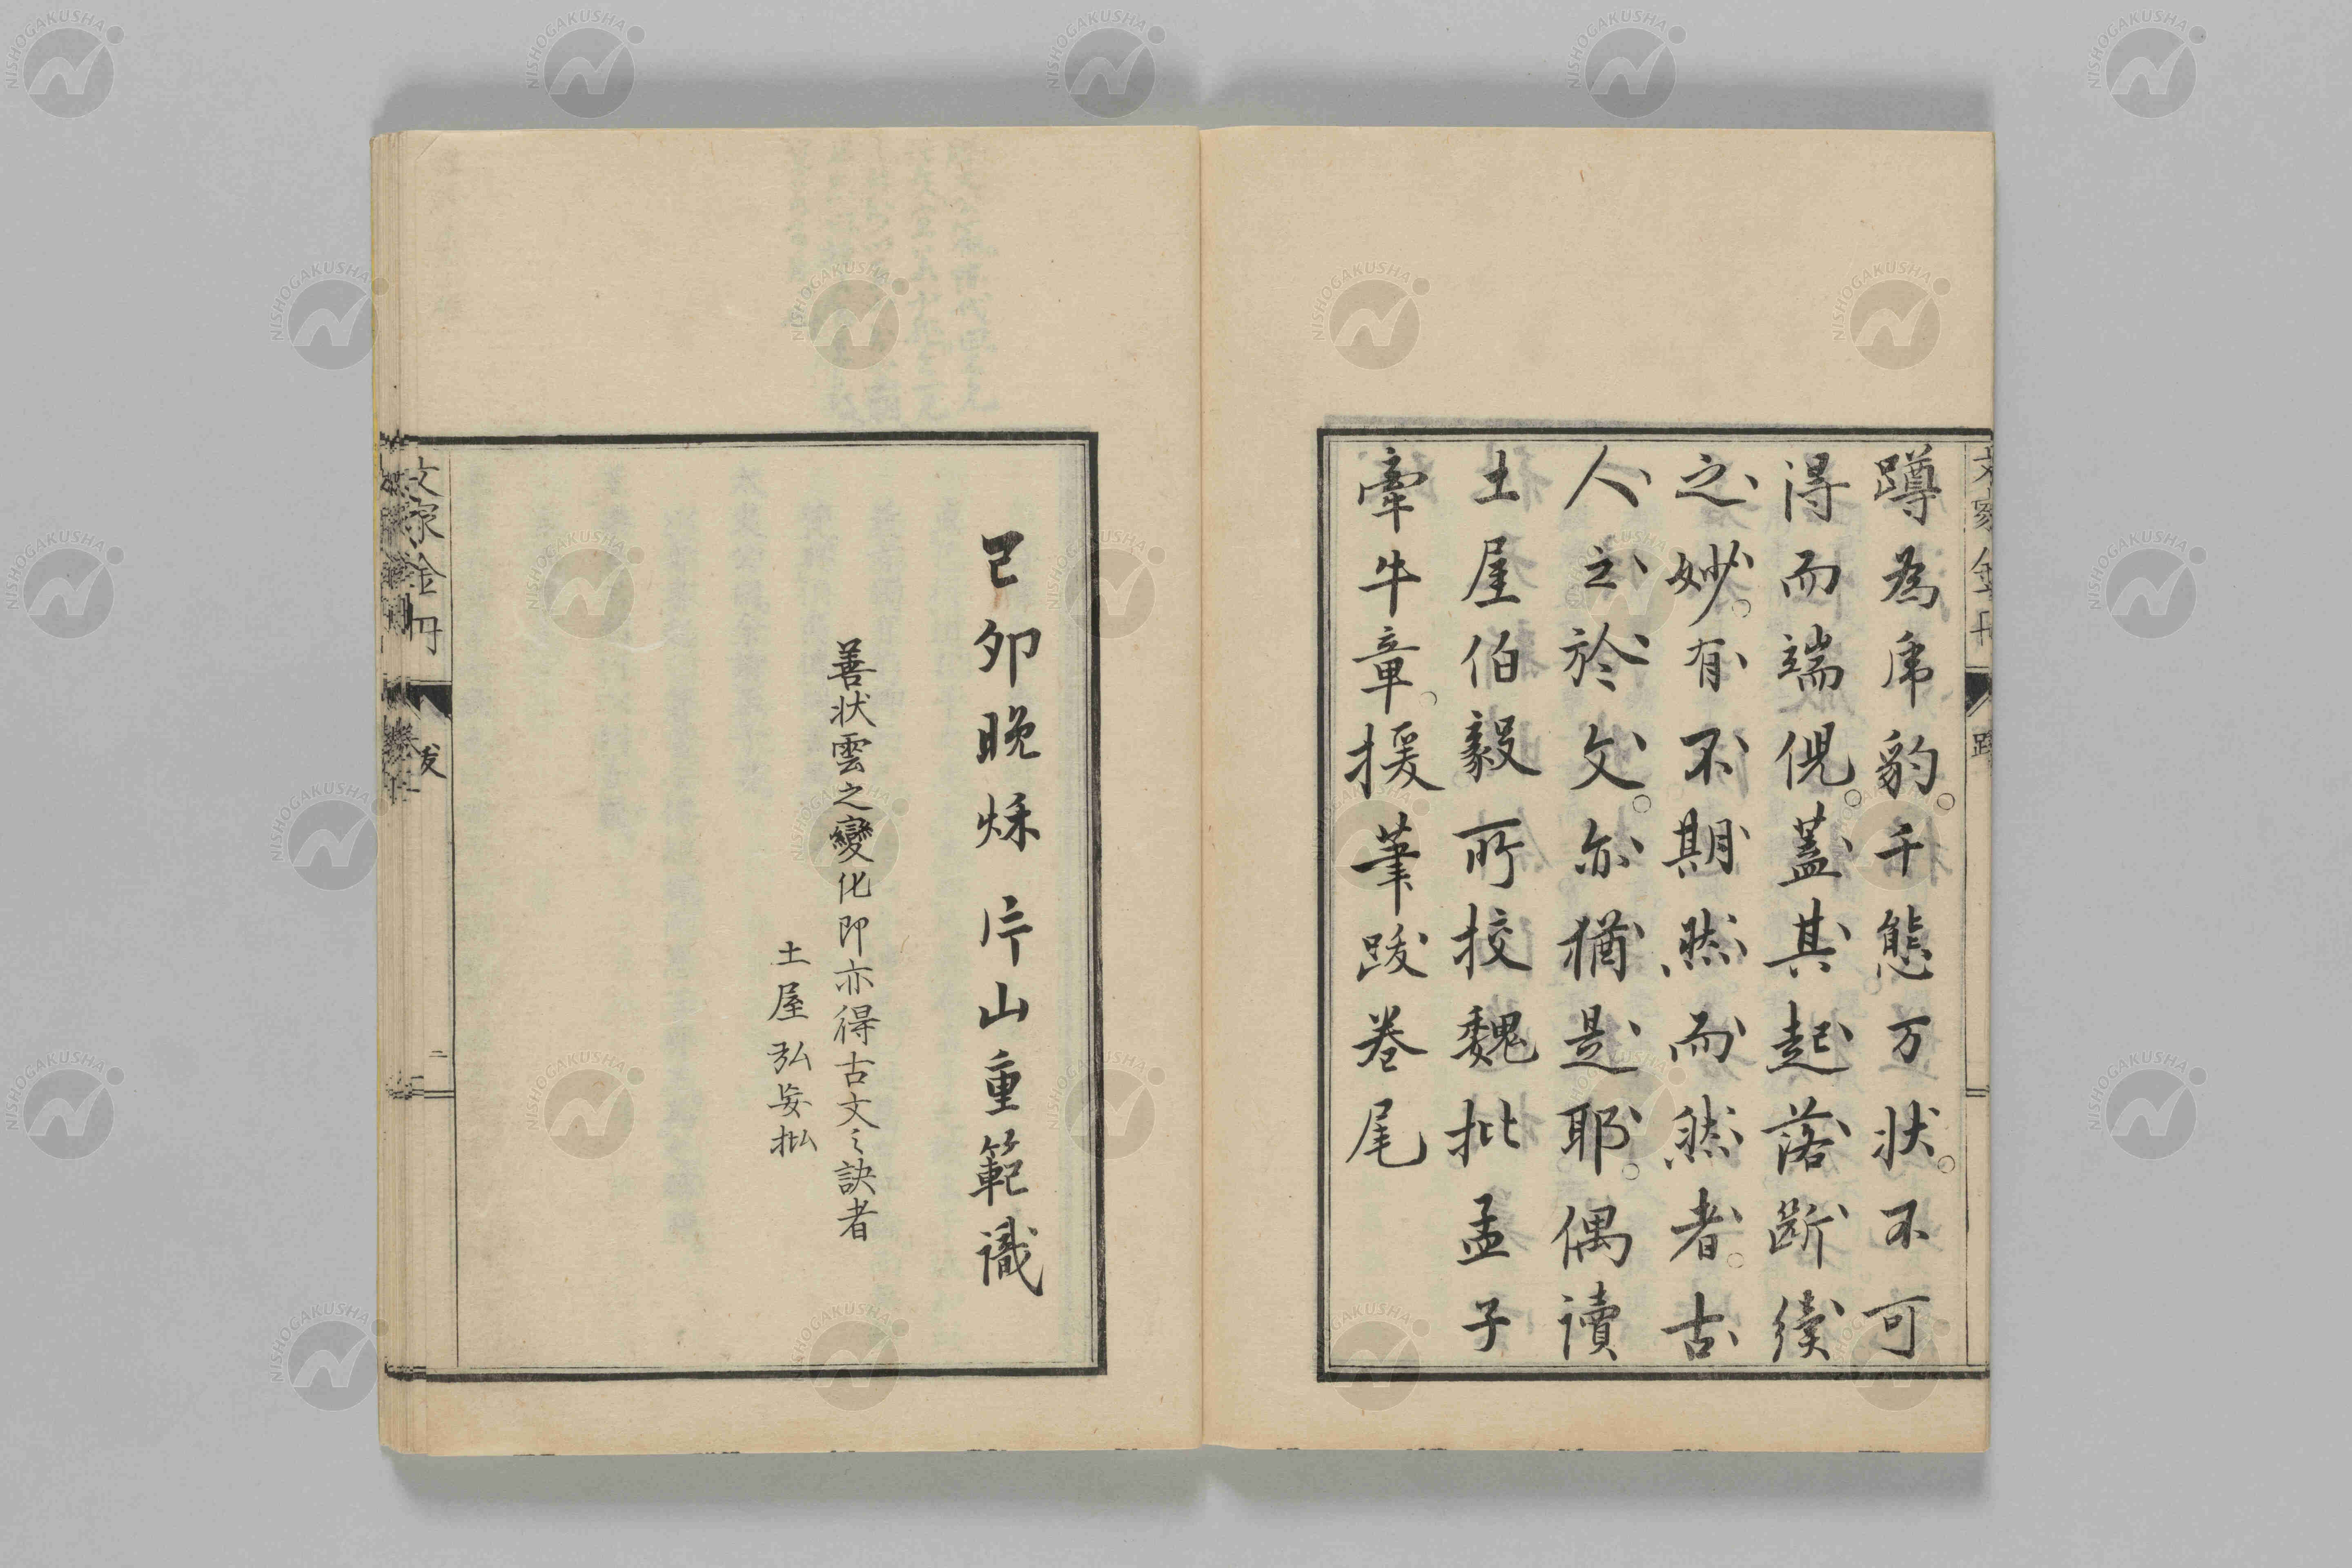 蹲爲乕豹。千態万状。不可
得而端倪。蓋其起落斷續
之妙。有不期然而然者。古
人之於文。亦猶是耶。偶讀
土屋伯毅所挍魏批孟子
牽牛章。援筆跋卷尾
己卯晩秌 片山重範識
善状雲之變化即亦得古文之訣者
土屋弘妄批
文家金冊
二
NISHOGAKUSHA